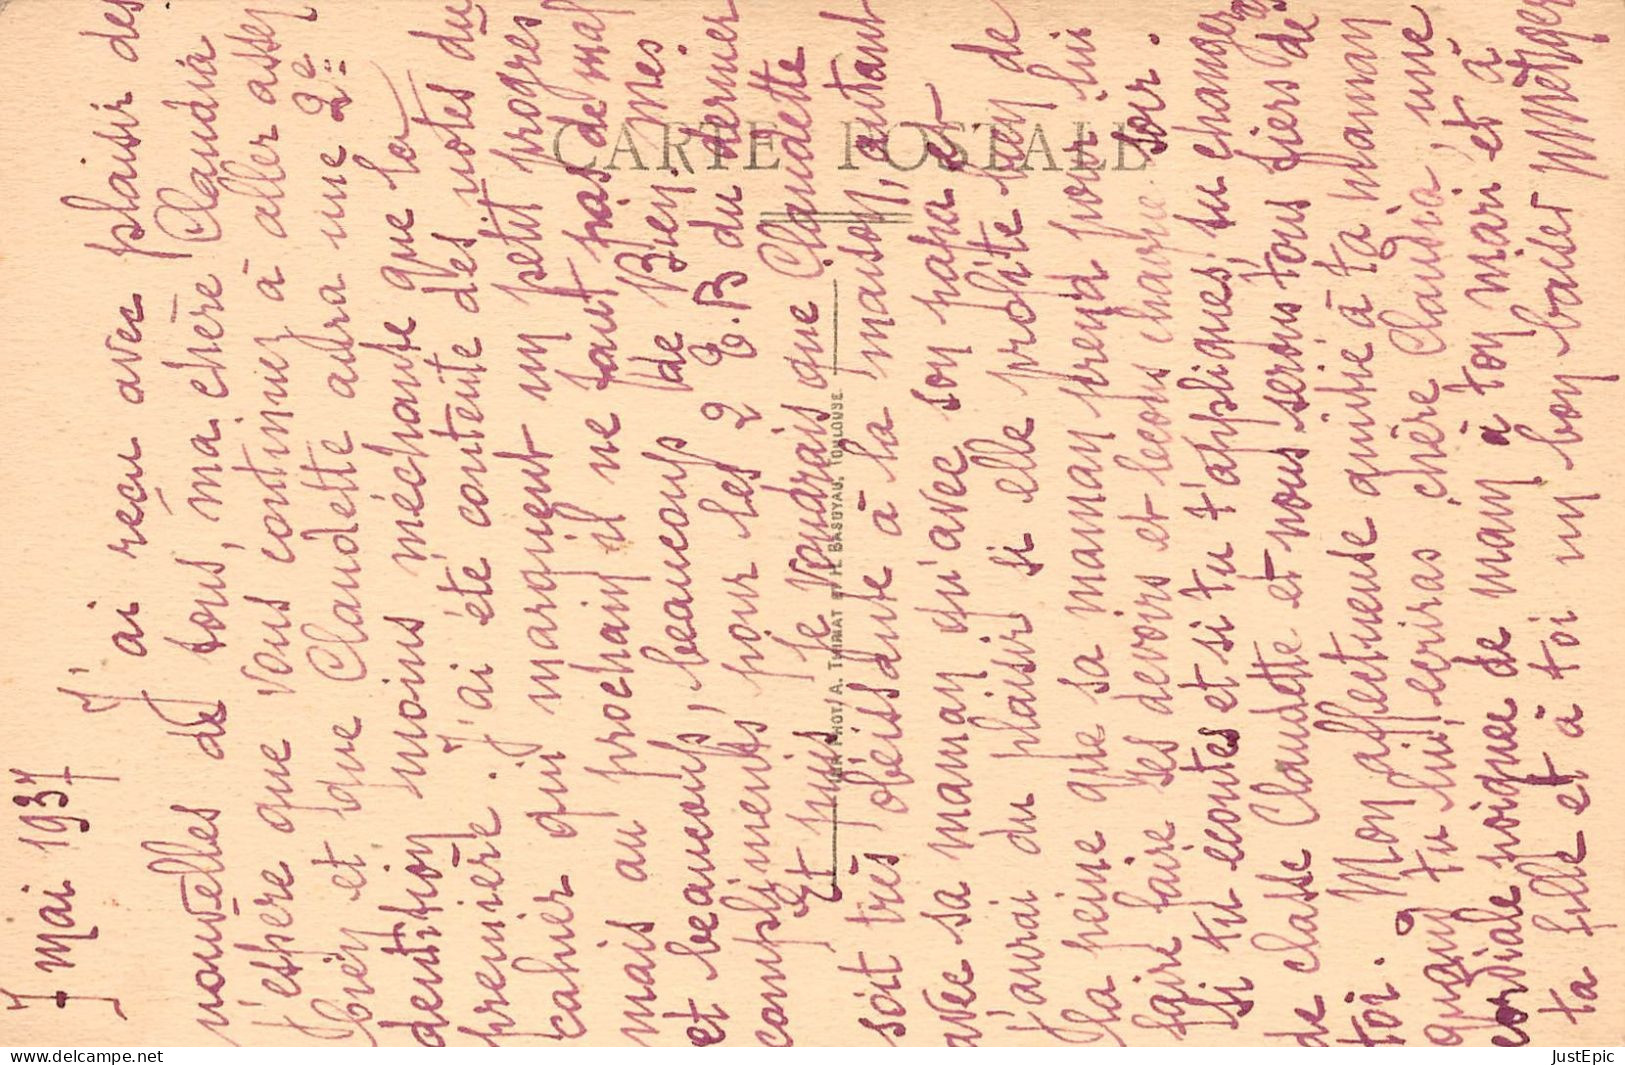 7 mai 1937
J'ai reçu avec plaisir des
nouvelles de tous, ma chère Claudia
j'espère que vous continuez à aller assez
bien et que Claudette aura une 2e
dentition moins méchante que la
première. J'ai été contente des notes du
cahier qui marquent un petit progrès
mais au prochain il ne faut pas de mal
et beaucoup, beaucoup de Bien. mes
compliments pour les 2 T.B du dernier
Et puis je voudrais que Claudette
soit très obéissante à la maison, autant
avec sa maman qu'avec son papa et
j'aurai du plaisir si elle profite bien de
la peine que sa maman prend pour lui
faire faire ses devoirs et leçons chaque soir.
Si tu écoutes et si tu t'appliques, tu changeras
de classe Claudette et nous serons tous fiers de
toi. Mon affectueuse amitié à ta maman
quand tu lui écriras chère Claudia, une
cordiale poignée de main à ton mari et à
ta fille et à toi un bon baiser MMetzger
CARTE POSTALE
PHOT/A. THIRIAT ET H. BASUYAU, TOULOUSE
www.delcampe.net
JustEpic